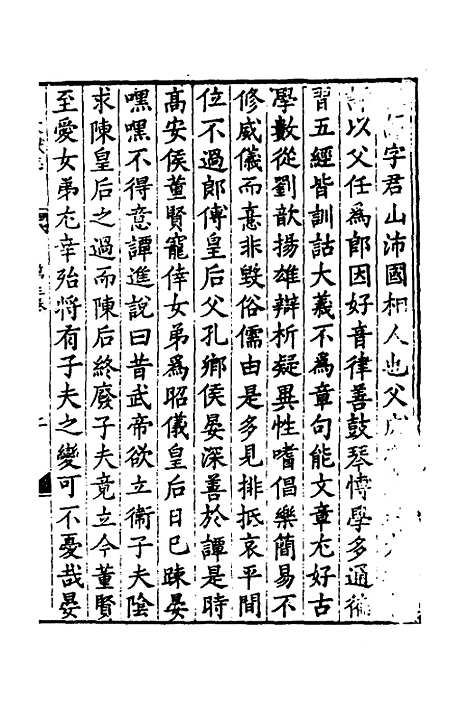 字君山沛國相人也父
以父任爲郎因好音律善鼓琴愽學多通徧
習五經皆訓詁大義不爲章句能文章尤好古
學數從劉歆揚雄辯析疑異性嗜倡樂簡易不
修威儀而憙非毀俗儒由是多見排抵哀平間
位不過郎傅皇后父孔鄉侯晏深善於譚是時
高安侯董賢寵倖女弟爲昭儀皇后日已疎晏
嘿嘿不得意譚進說曰昔武帝欲立衞子夫陰
求陳皇后之過而陳后終廢子夫竟立今董賢
至愛女弟尤幸殆將有子夫之變可不憂哉晏